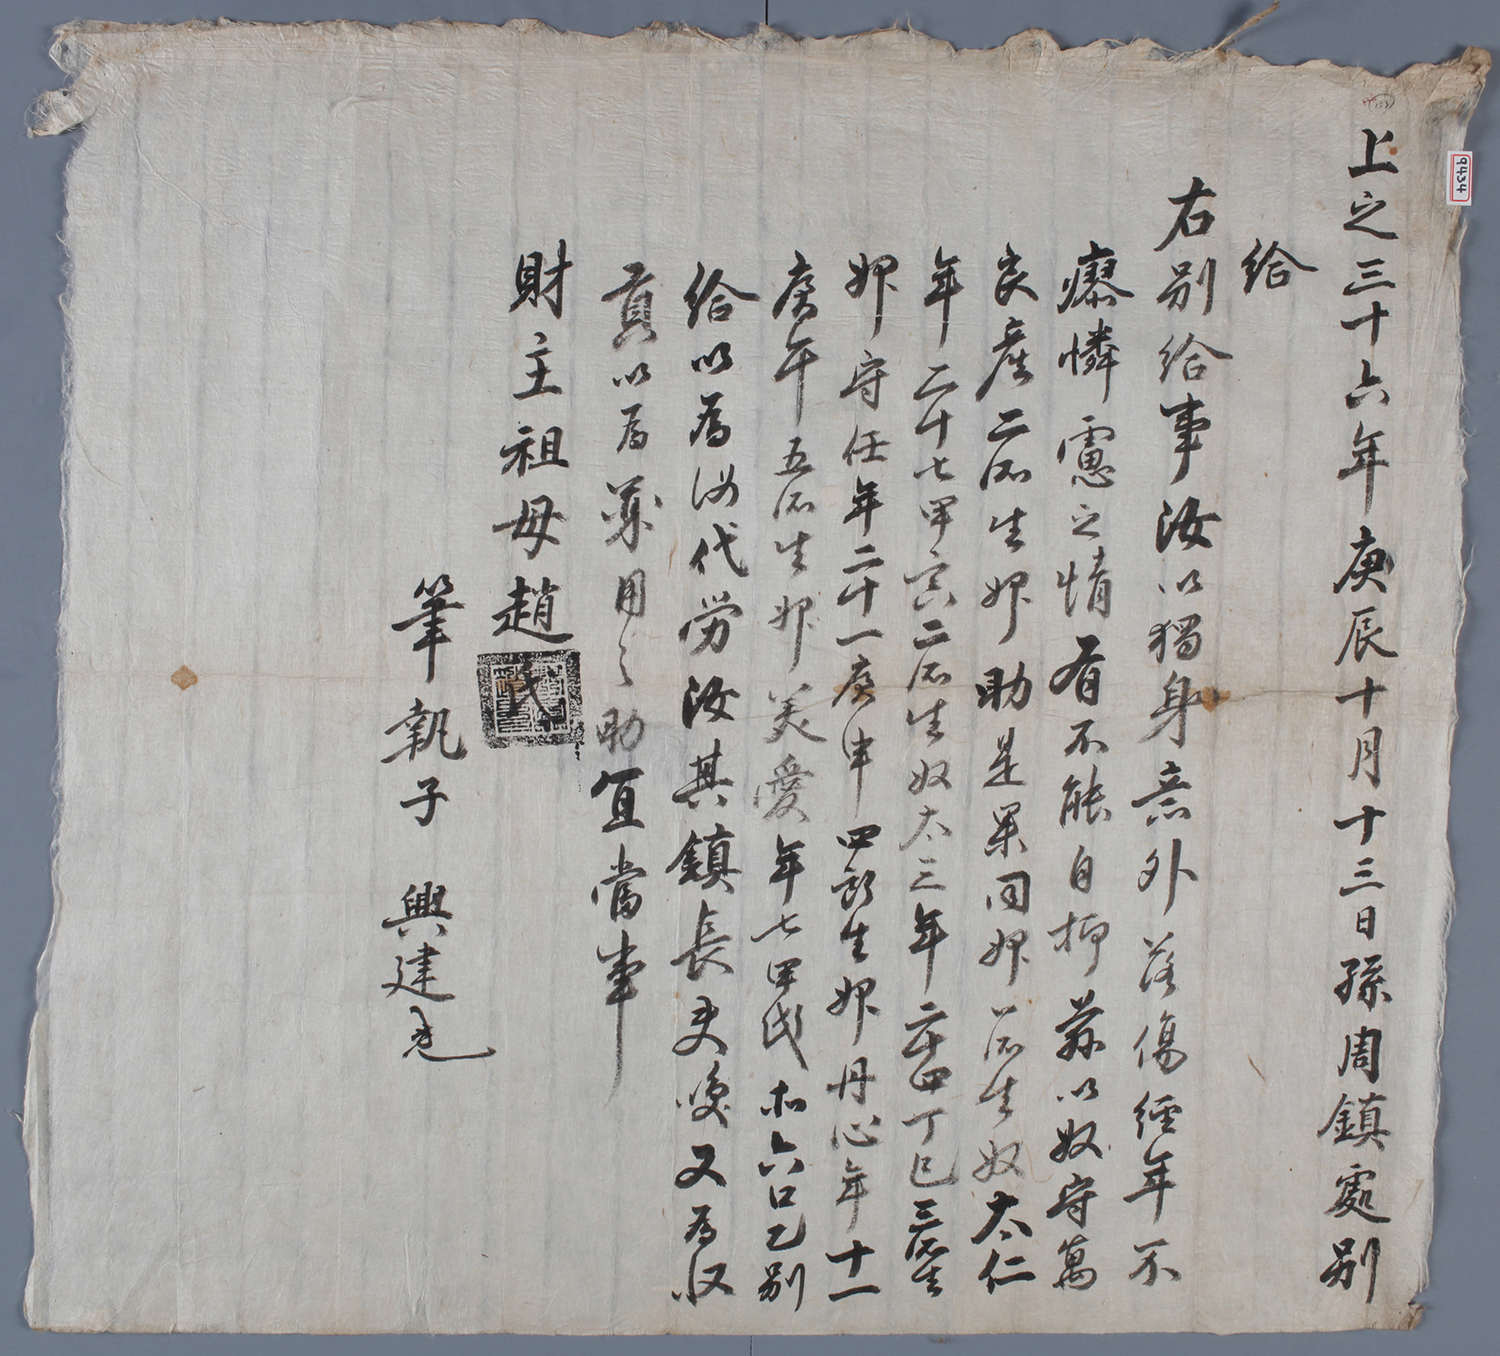 上之三十六年庚辰十月十三日孫周鎮處別
給
右別給事汝以獨身意外落傷經年不
瘳憐慮之情有不能自抑茲以奴守萬
良産二所生婢助是果同婢一所生奴太仁
年二十七甲寅二所生奴太三年二十四丁巳三所生
婢守任年二十一庚申四所生婢丹心年十一
庚午五所生婢美愛年七甲戌等六口乙別
給以爲汝代勞汝其鎮長使喚又爲收
貢以爲藥用之助宜當事
財主祖母趙氏
筆執子 興建
9434